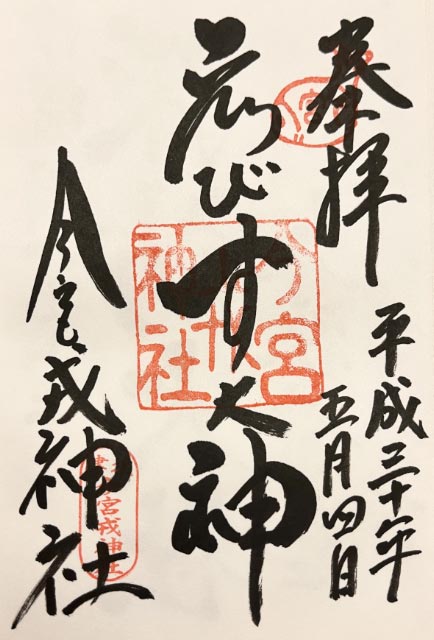 奉拝
平成三十年
五月四日
ゑびす大神
今宮戎神社
今宮
戎
神社